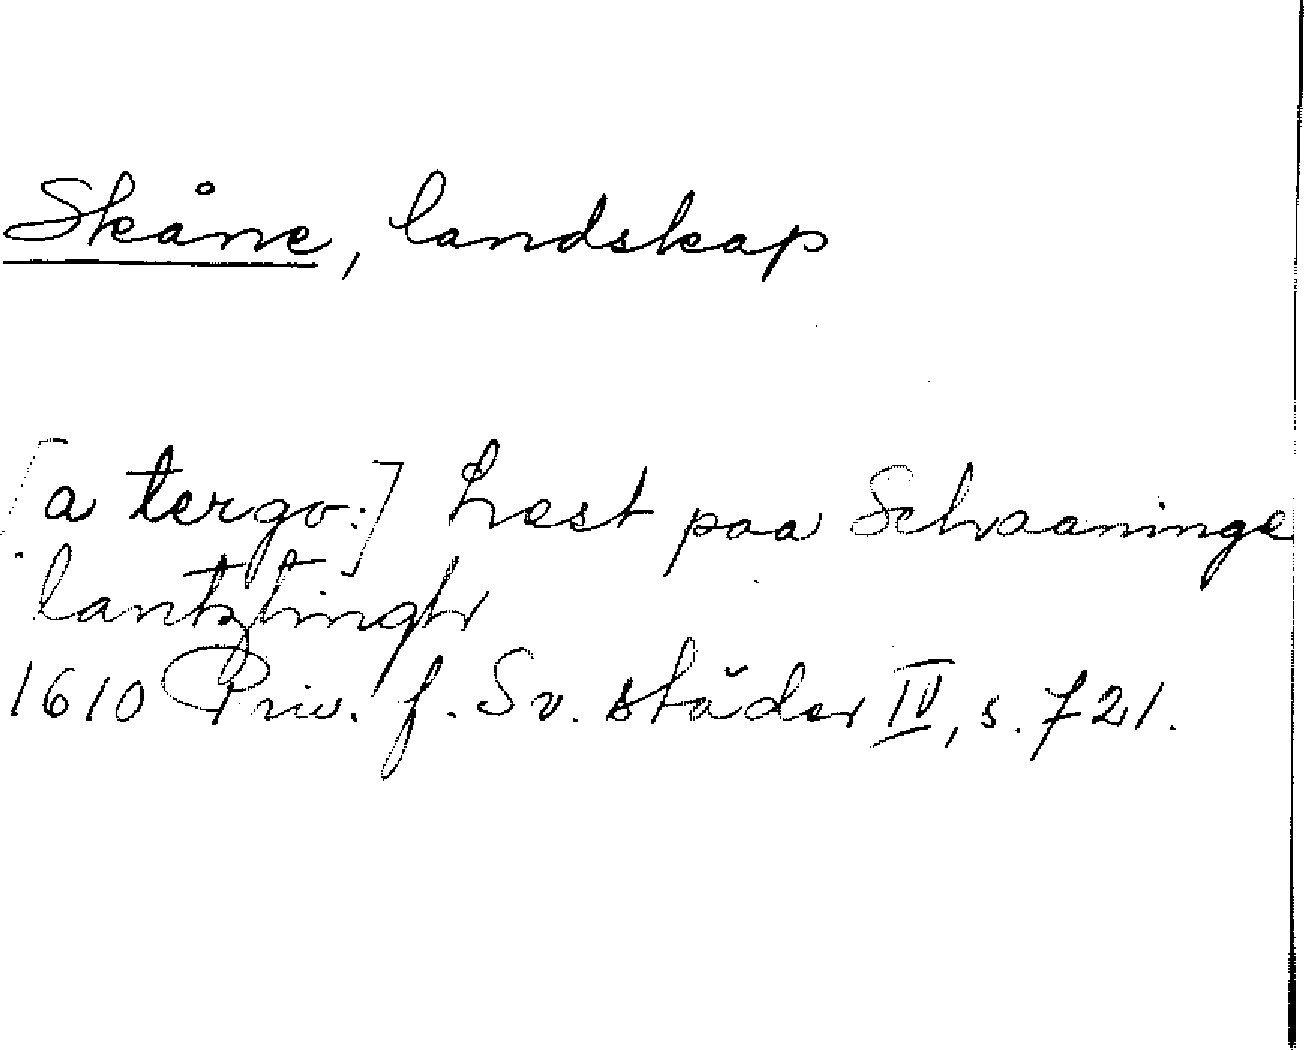 Skåne, landskap
[a tergo:] Læst paa Schaaninge
lantztingh
1610 Priv. f. Sv. städer IV, s. 721.